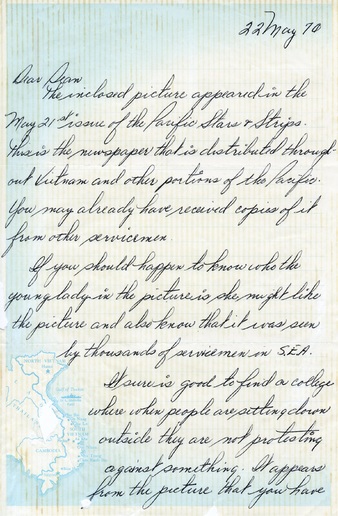 22 May 70
Dear Dean
The inclosed picture appeared in the
May 21st issue of the Pacific Stars & Strips.
This is the newspaper that is distributed through-
out Vietnam and other portions of the Pacific.
You may already have received copies of it
from other servicemen.
If you should happen to know who the
young lady in the picture is she might like
the picture and also know that it was seen
by thousands of servicemen in S.E.A.
It sure is good to find a college
where when people are sitting down
outside they are not protesting
against something. It appears
from the picture that you have
NORTH VIETNAM
CAMBODIA